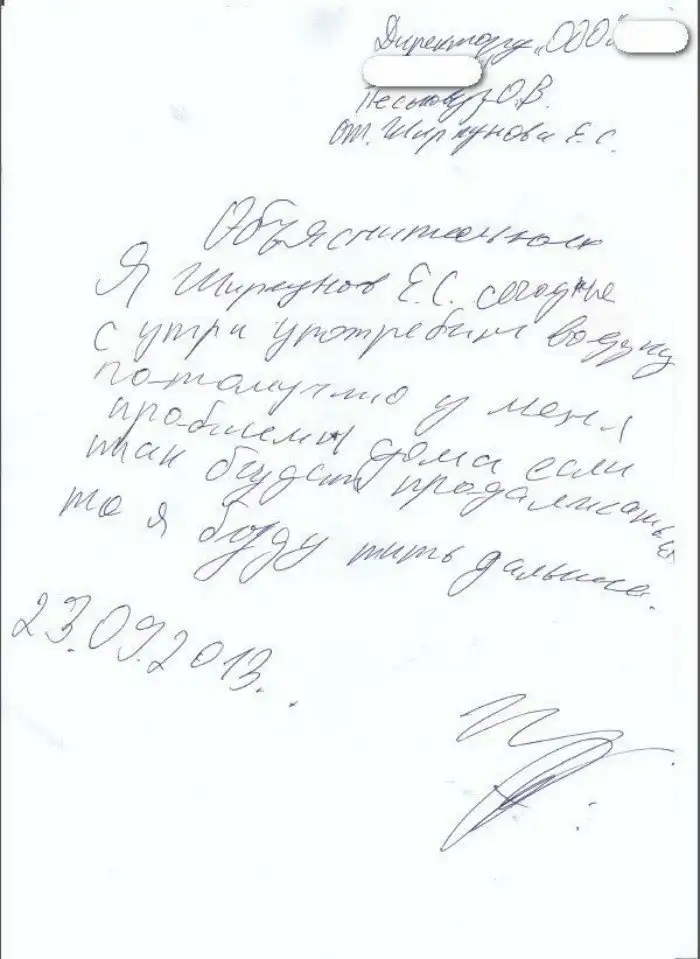 Директору „ООО"
О.В.
от. Ширкунова Е.С.
Объяснительная
Я Ширкунов Е.С. сегодне
с утра употребил водку
потомучто у меня
проблемы дома если
так будет продалжаться
то я боду пить дальше.
23.09.2013.